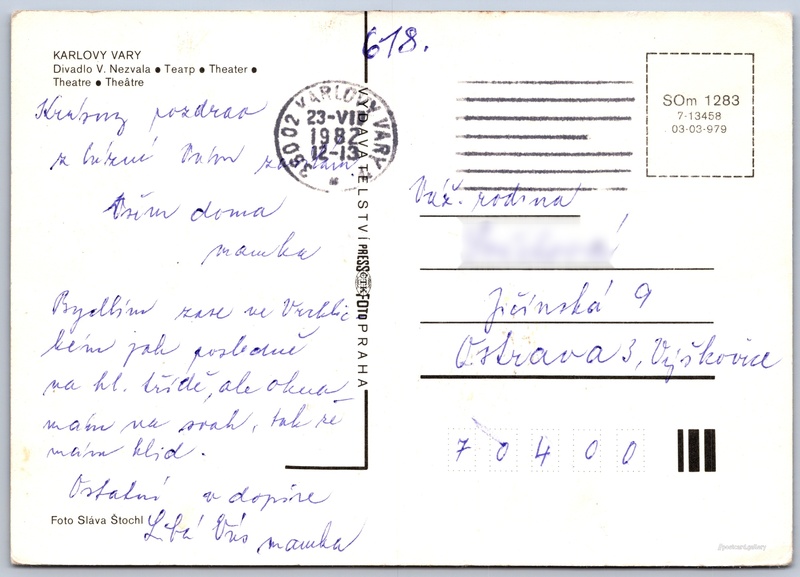 KARLOVY VARY
Divadlo V. Nezvala ● Театр ● Theater ●
Theatre ● Théâtre
618.
36002 KARLOVY VARY
23-VII
1982
12-13
SOm 1283
7-13458
03-03-979
Krásný pozdrav
z lázní Vám
Všem doma
mamka
Bydlím zase ve
jak posledně
na hl. třídě, ale okna
mám na svah, tak že
mám klid.
Ostatní v dopise
Líbá Vás mamka
Foto Sláva Štochl
VYDAVATELSTVÍ PRESSFOTO PRAHA
ČTK
Váž. rodina
Jičínská 9
Ostrava 3, Výškovice
70400
//postcard.gallery